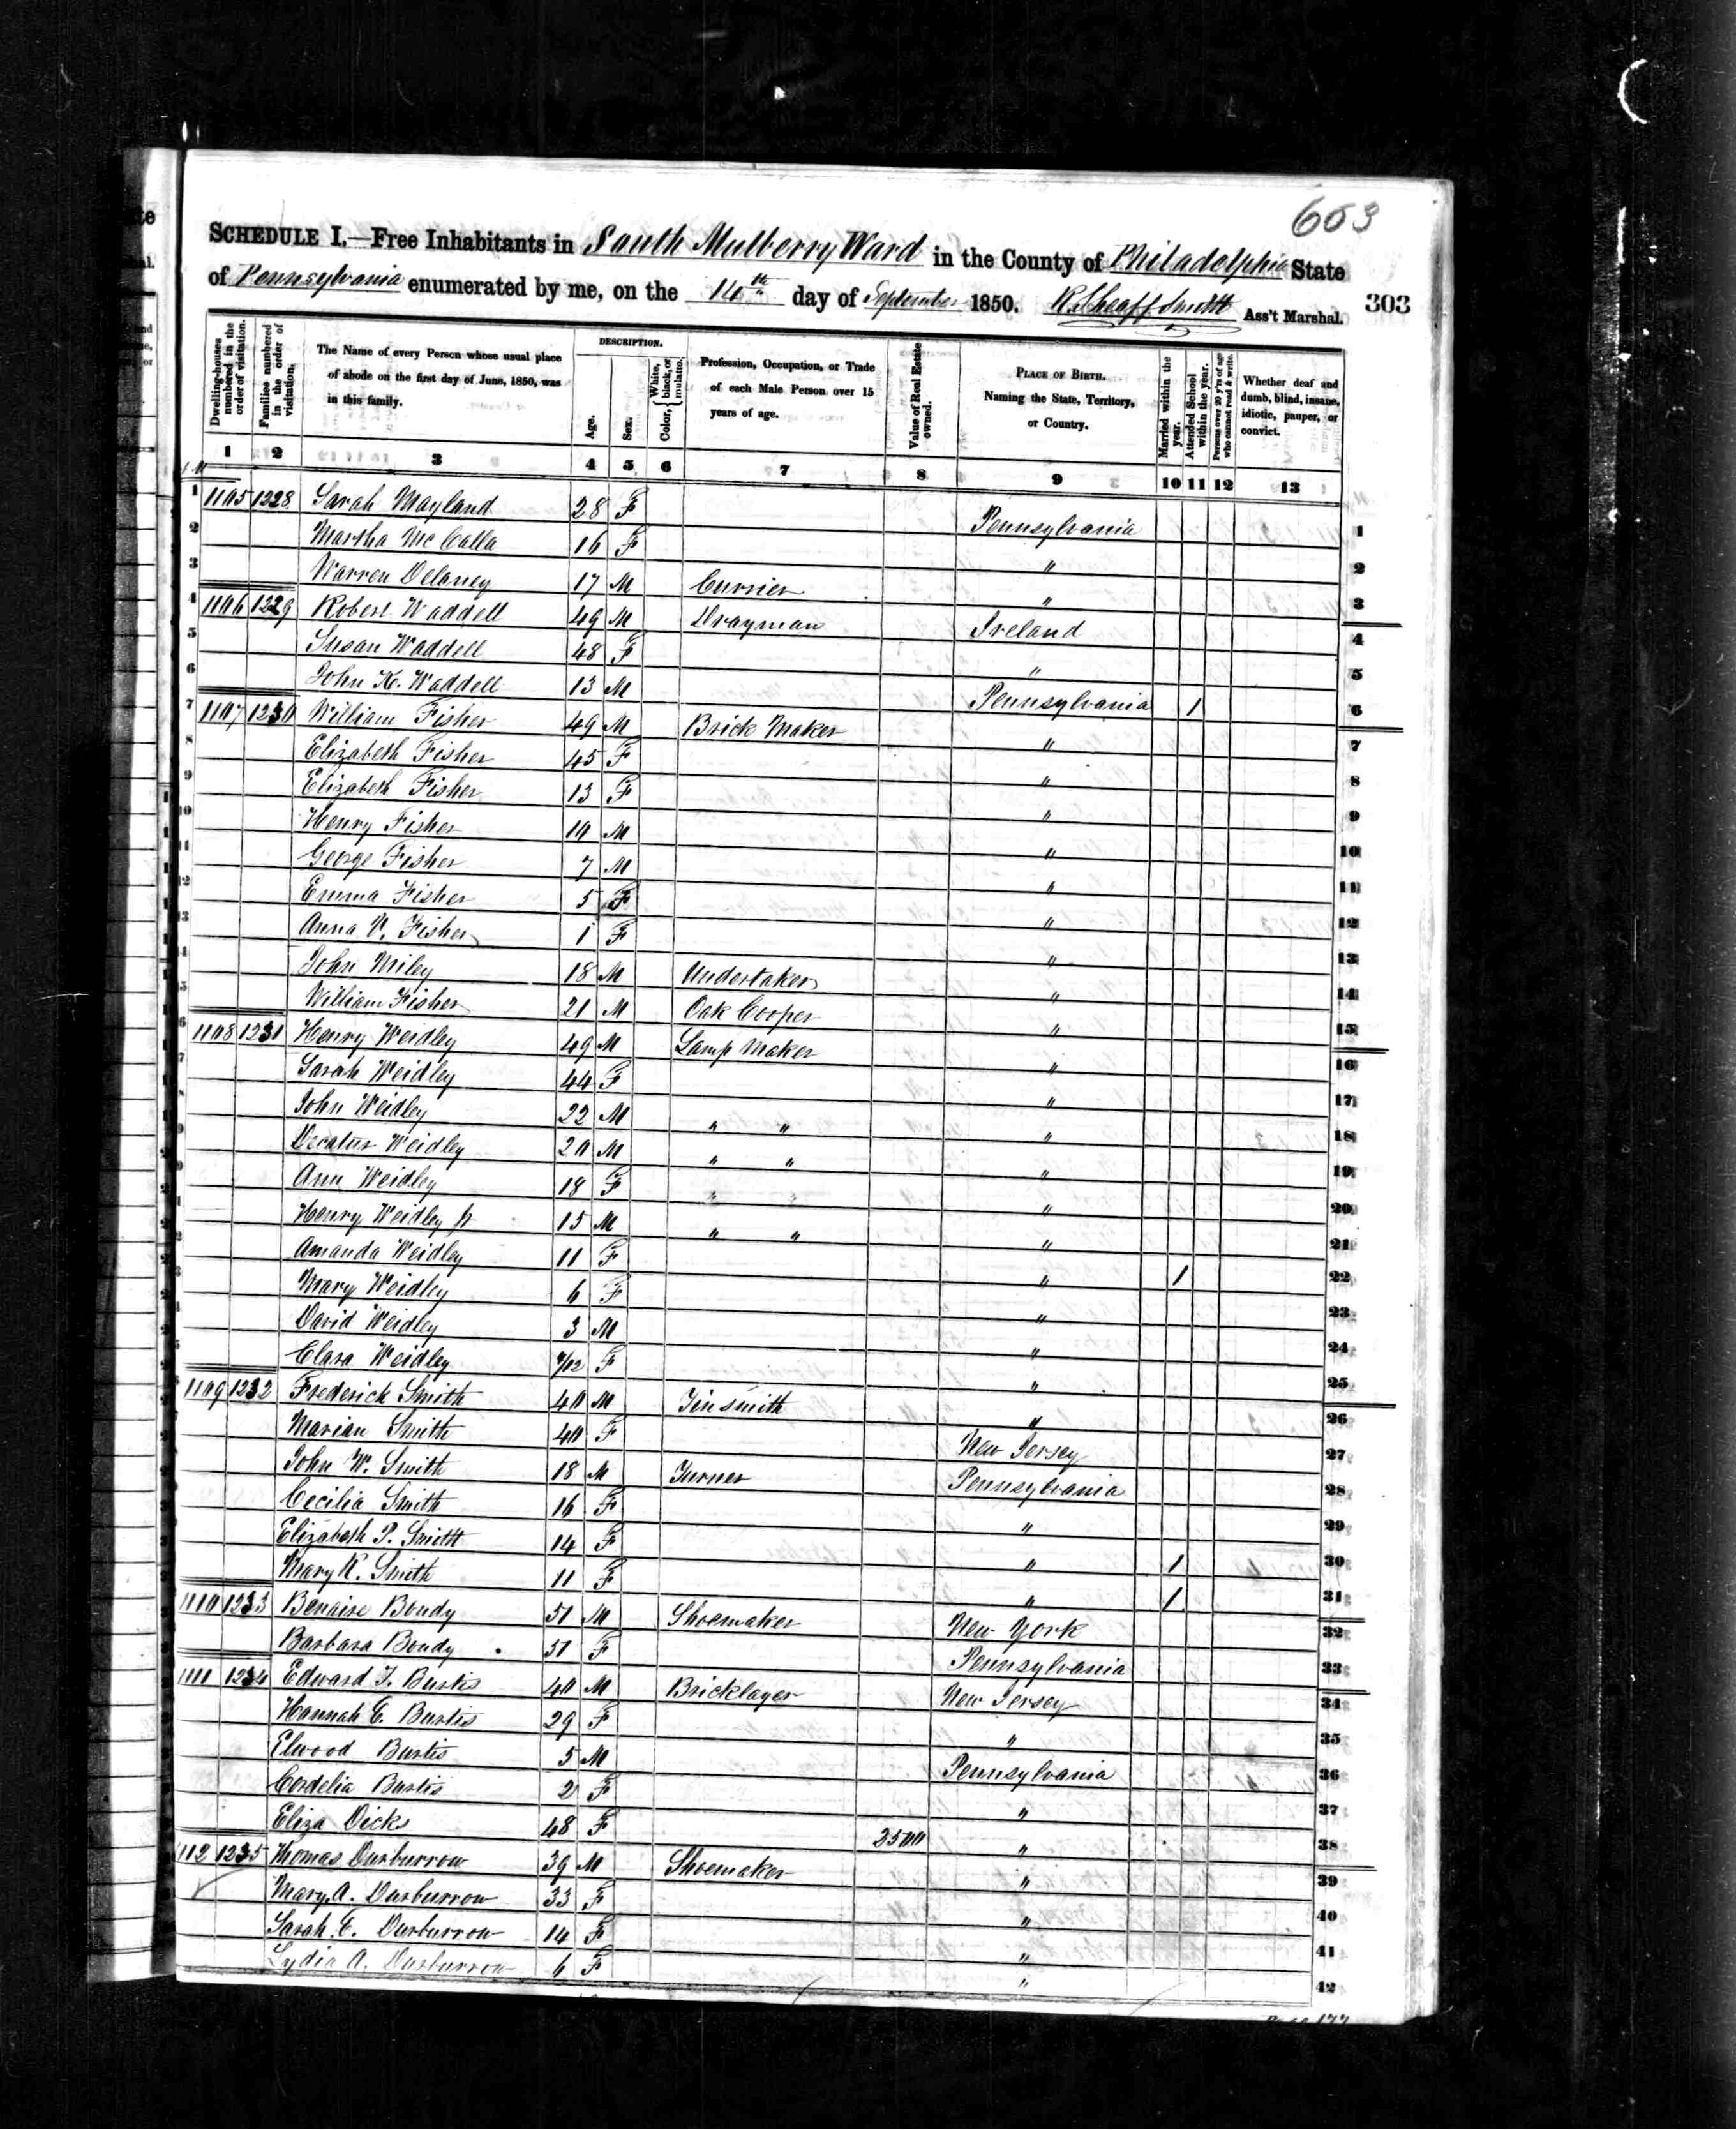 603
SCHEDULE I.—Free Inhabitants in South Mulberry Ward in the County of Philadelphia State
of Pennsylvania enumerated by me, on the 14th day of September 1850. R. Sheaff Smith Ass't Marshal. 303
Dwelling-houses numbered in the order of visitation.
Families numbered in the order of visitation.
The Name of every Person whose usual place of abode on the first day of June, 1850, was in this family.
DESCRIPTION.
Age.
Sex.
Color, { White, black, or mulatto.
Profession, Occupation, or Trade of each Male Person over 15 years of age.
Value of Real Estate owned.
PLACE OF BIRTH. Naming the State, Territory, or Country.
Married within the year.
Attended School within the year.
Persons over 20 y'rs of age who cannot read & write.
Whether deaf and dumb, blind, insane, idiotic, pauper, or convict.
1 2 3 4 5 6 7 8 9 10 11 12 13
1 1105 1228 Sarah Mayland 28 F Pennsylvania 1
2 Martha McCalla 16 F " 2
3 Warren Delaney 17 M Currier " 3
4 1106 1229 Robert Waddell 49 M Drayman Ireland 4
5 Susan Waddell 48 F " 5
6 John K. Waddell 13 M Pennsylvania 1 6
7 1107 1230 William Fisher 49 M Brick Maker " 7
8 Elizabeth Fisher 45 F " 8
9 Elizabeth Fisher 13 F " 9
10 Henry Fisher 10 M " 10
11 George Fisher 7 M " 11
12 Emma Fisher 5 F " 12
13 Anna V. Fisher 1 F " 13
John Miley 18 M Undertaker " 14
William Fisher 21 M Oak Cooper " 15
1108 1231 Henry Weidley 49 M Lamp Maker " 16
Sarah Weidley 44 F " 17
John Weidley 22 M " " " 18
Decatur Weidley 20 M " " " 19
Ann Weidley 18 F " " " 20
Henry Weidley Jr 15 M " " " 21
Amanda Weidley 11 F " 1 22
Mary Weidley 6 F " 23
David Weidley 3 M " 24
Clara Weidley 9/12 F " 25
1109 1232 Frederick Smith 40 M Tinsmith " 26
Marian Smith 40 F New Jersey 27
John W. Smith 18 M Turner Pennsylvania 28
Cecilia Smith 16 F " 29
Elizabeth P. Smith 14 F " 1 30
Mary K. Smith 11 F " 1 31
1110 1233 Benaise Boudy 51 M Shoemaker New York 32
Barbara Boudy 51 F Pennsylvania 33
1111 1234 Edward T. Burtis 40 M Bricklayer New Jersey 34
Hannah E. Burtis 29 F " 35
Elwood Burtis 5 M Pennsylvania 36
Cordelia Burtis 2 F " 37
Eliza Dicks 48 F 2500 " 38
1112 1235 Thomas Durburrow 39 M Shoemaker " 39
Mary A. Durburrow 33 F " 40
Sarah E. Durburrow 14 F " 41
Lydia A. Durburrow 6 F " 42